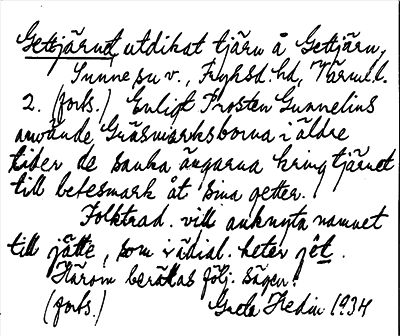 Getttjärnet, utdikat tjärn å Gettjärn,
Sunne sn v., Fryksd. hd, Värml. l.
2. (forts.) Enligt Prosten Gunnelius
använde Gräsmarksborna i äldre
tider de sanka ängarna kring tjärnet
till betesmark åt sina getter.
Folktrad. vill anknyta namnet
till jätte, som i dial. heter jöt.
Härom berättas följ. sägen:
(forts.) Greta Hedin 1934